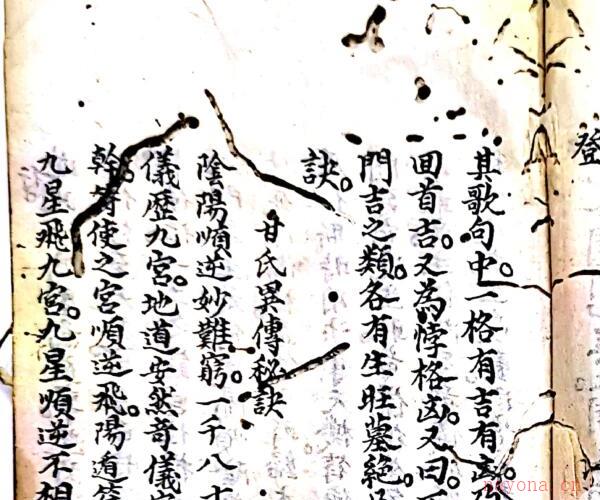 登
其歌句中。一格有吉有凶
回首吉。又為悖格凶。又曰。
門吉之類。各有生旺墓絕
訣。
甘氏異傳秘訣
陰陽順逆妙難窮。一千八十
儀歷九宮。地道安然奇儀
幹等使之宮順逆飛。陽遁
九星飛九宮。九星順逆不相
nayona.cn